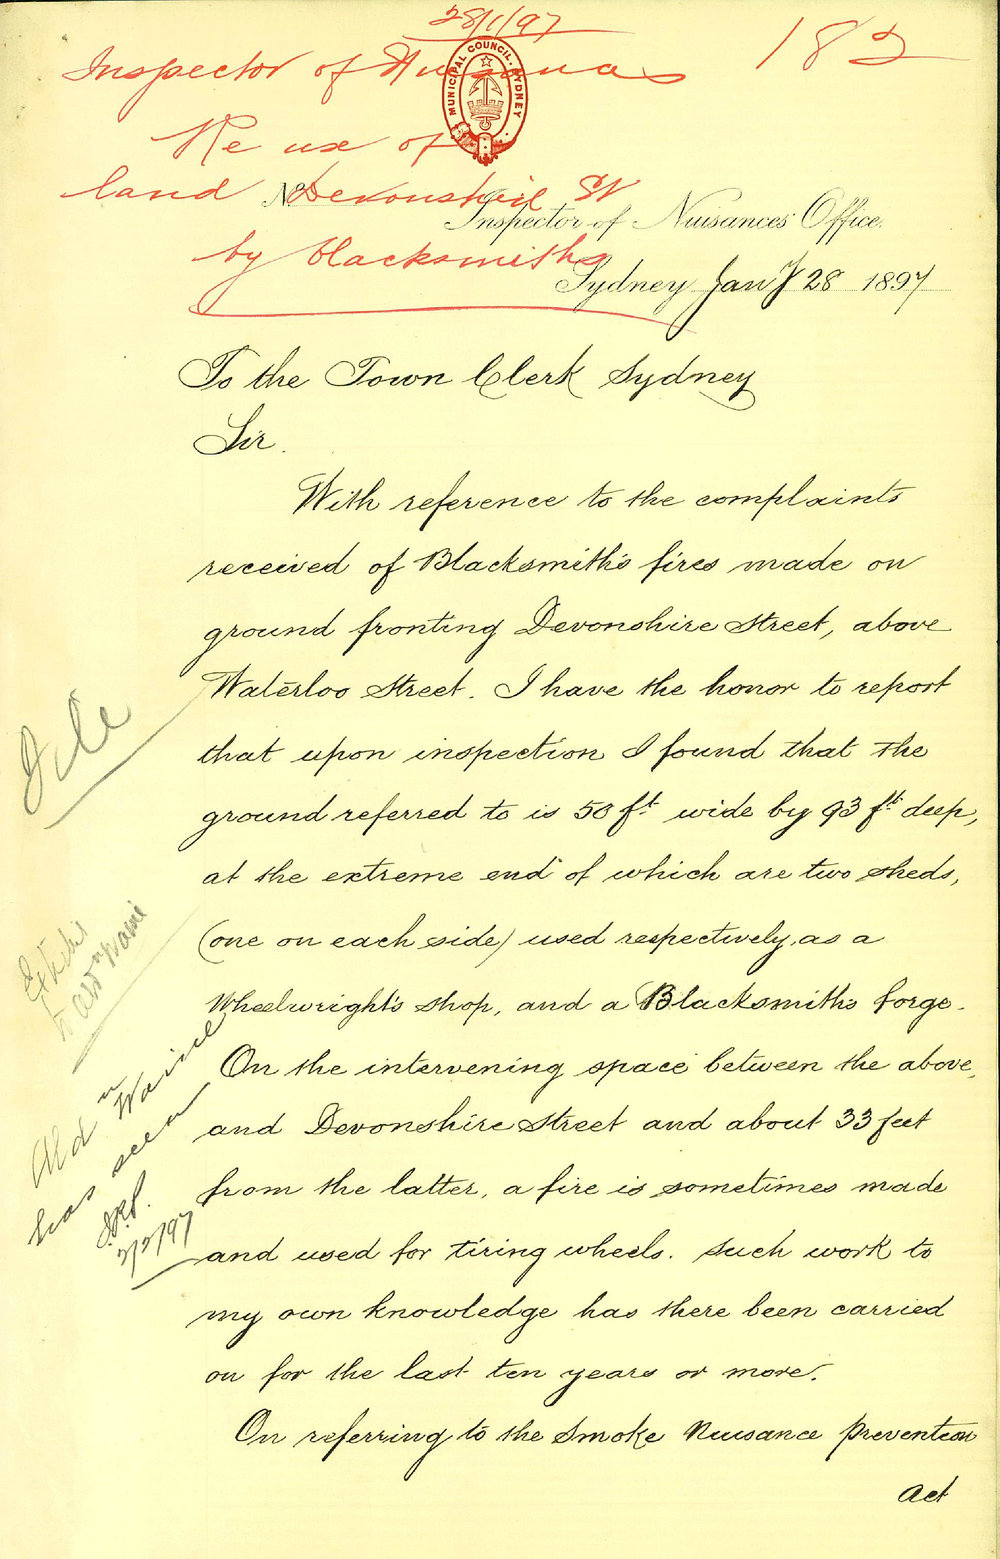 28/1/97
182
Inspector of Nuisances
MUNICIPAL COUNCIL. SYDNEY
Re use of
land Devonshire St
by blacksmiths
No
Inspector of Nuisances' Office.
Sydney Jany 28 1897
To the Town Clerk Sydney
Sir.
With reference to the complaints
received of Blacksmith's fires made on
ground fronting Devonshire Street, above
Waterloo Street. I have the honor to report
that upon inspection I found that the
ground referred to is 50 ft. wide by 93 ft. deep,
at the extreme end of which are two sheds,
(one on each side) used respectively, as a
Wheelwright's shop, and a Blacksmith's forge.
On the intervening space between the above,
and Devonshire Street and about 33 feet
from the latter, a fire is sometimes made
and used for tiring wheels. Such work to
my own knowledge has there been carried
on for the last ten years or more.
On referring to the Smoke Nuisance Prevention
Act
File
Aldn
Aldn Waine
has seen
2/2/97